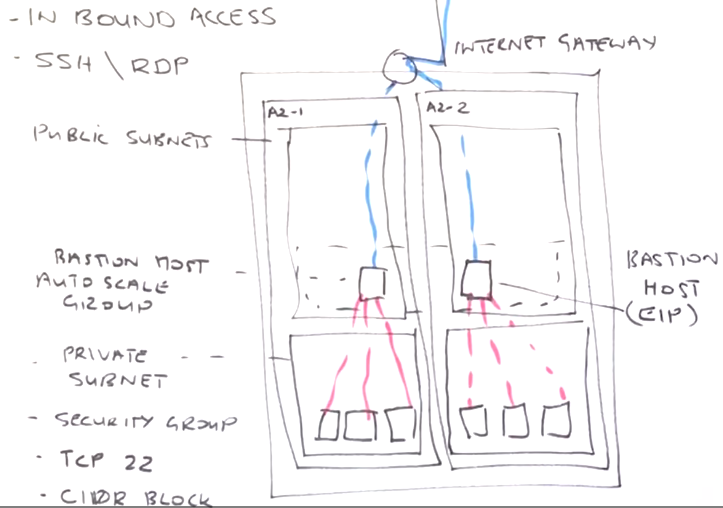 - IN BOUND ACCESS
- SSH \ RDP
INTERNET GATEWAY
AZ-1
AZ-2
PUBLIC SUBNETS
BASTION HOST
AUTO SCALE
GROUP
BASTION
HOST
(EIP)
PRIVATE
SUBNET
- SECURITY GROUP
- TCP 22
- CIDR BLOCK